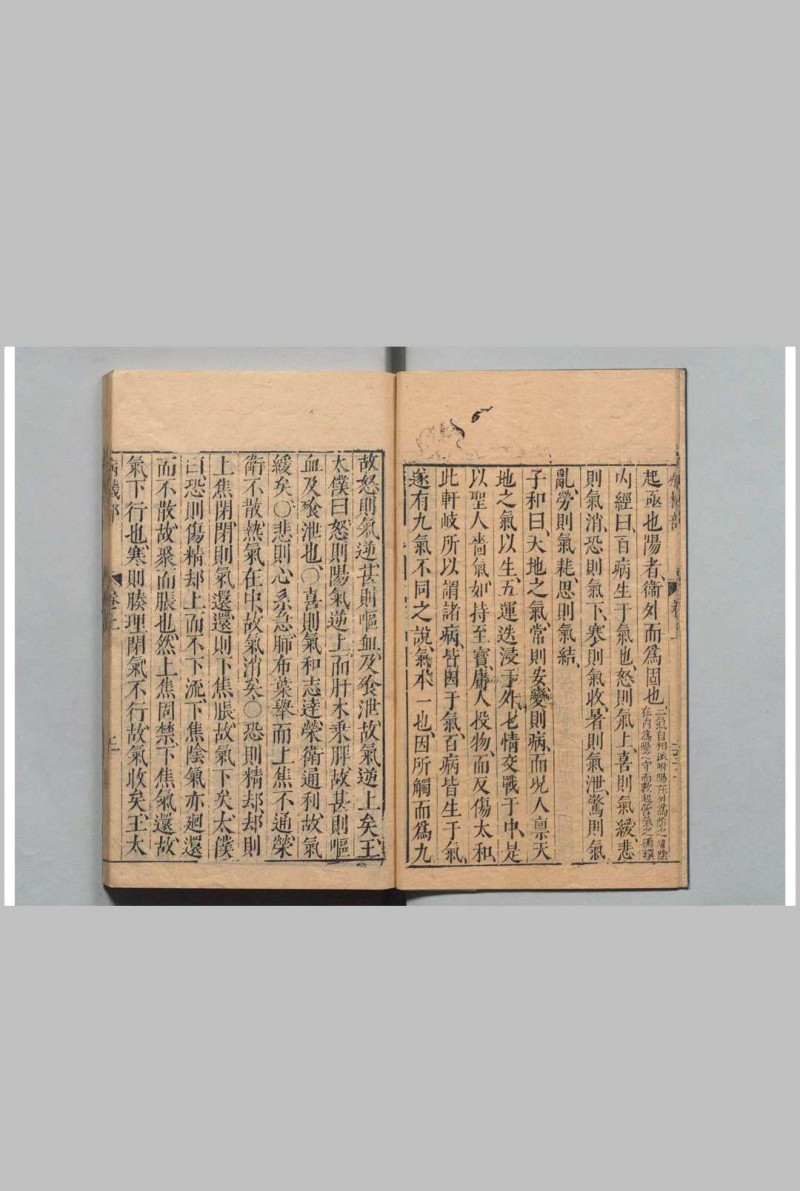 起亟也陽者衛外而爲固也
内經曰百病生于氣也怒則氣上喜則氣緩悲
則氣消恐則氣下寒則氣收暑則氣泄驚則氣
亂勞則氣耗思則氣結
子和曰天地之氣常則安變則病而况人禀天
地之氣以生五運迭浸于外七情交戰于中是
以聖人嗇氣如持至寶庸人投物而反傷太和
此軒岐所以謂諸病皆因于氣百病皆生于氣
遂有九氣不同之說氣本一也因所觸而爲九
故怒則氣逆甚則嘔血及飱泄故氣逆上矣王
太僕曰怒則陽氣逆上而肝木乘脾故甚則嘔
血及飱泄也○喜則氣和志達榮衛通利故氣
緩矣○悲則心系急肺布葉舉而上焦不通榮
衛不散熱氣在中故氣消矣○恐則精却却則
上焦閉閉則氣還還則下焦脹故氣下矣太僕
曰恐則傷精却上而不下流下焦陰氣亦廻還
而不散故聚而脹也然上焦固禁下焦氣還故
氣下行也寒則腠理閉氣不行故氣收矣王太
病機部 卷上